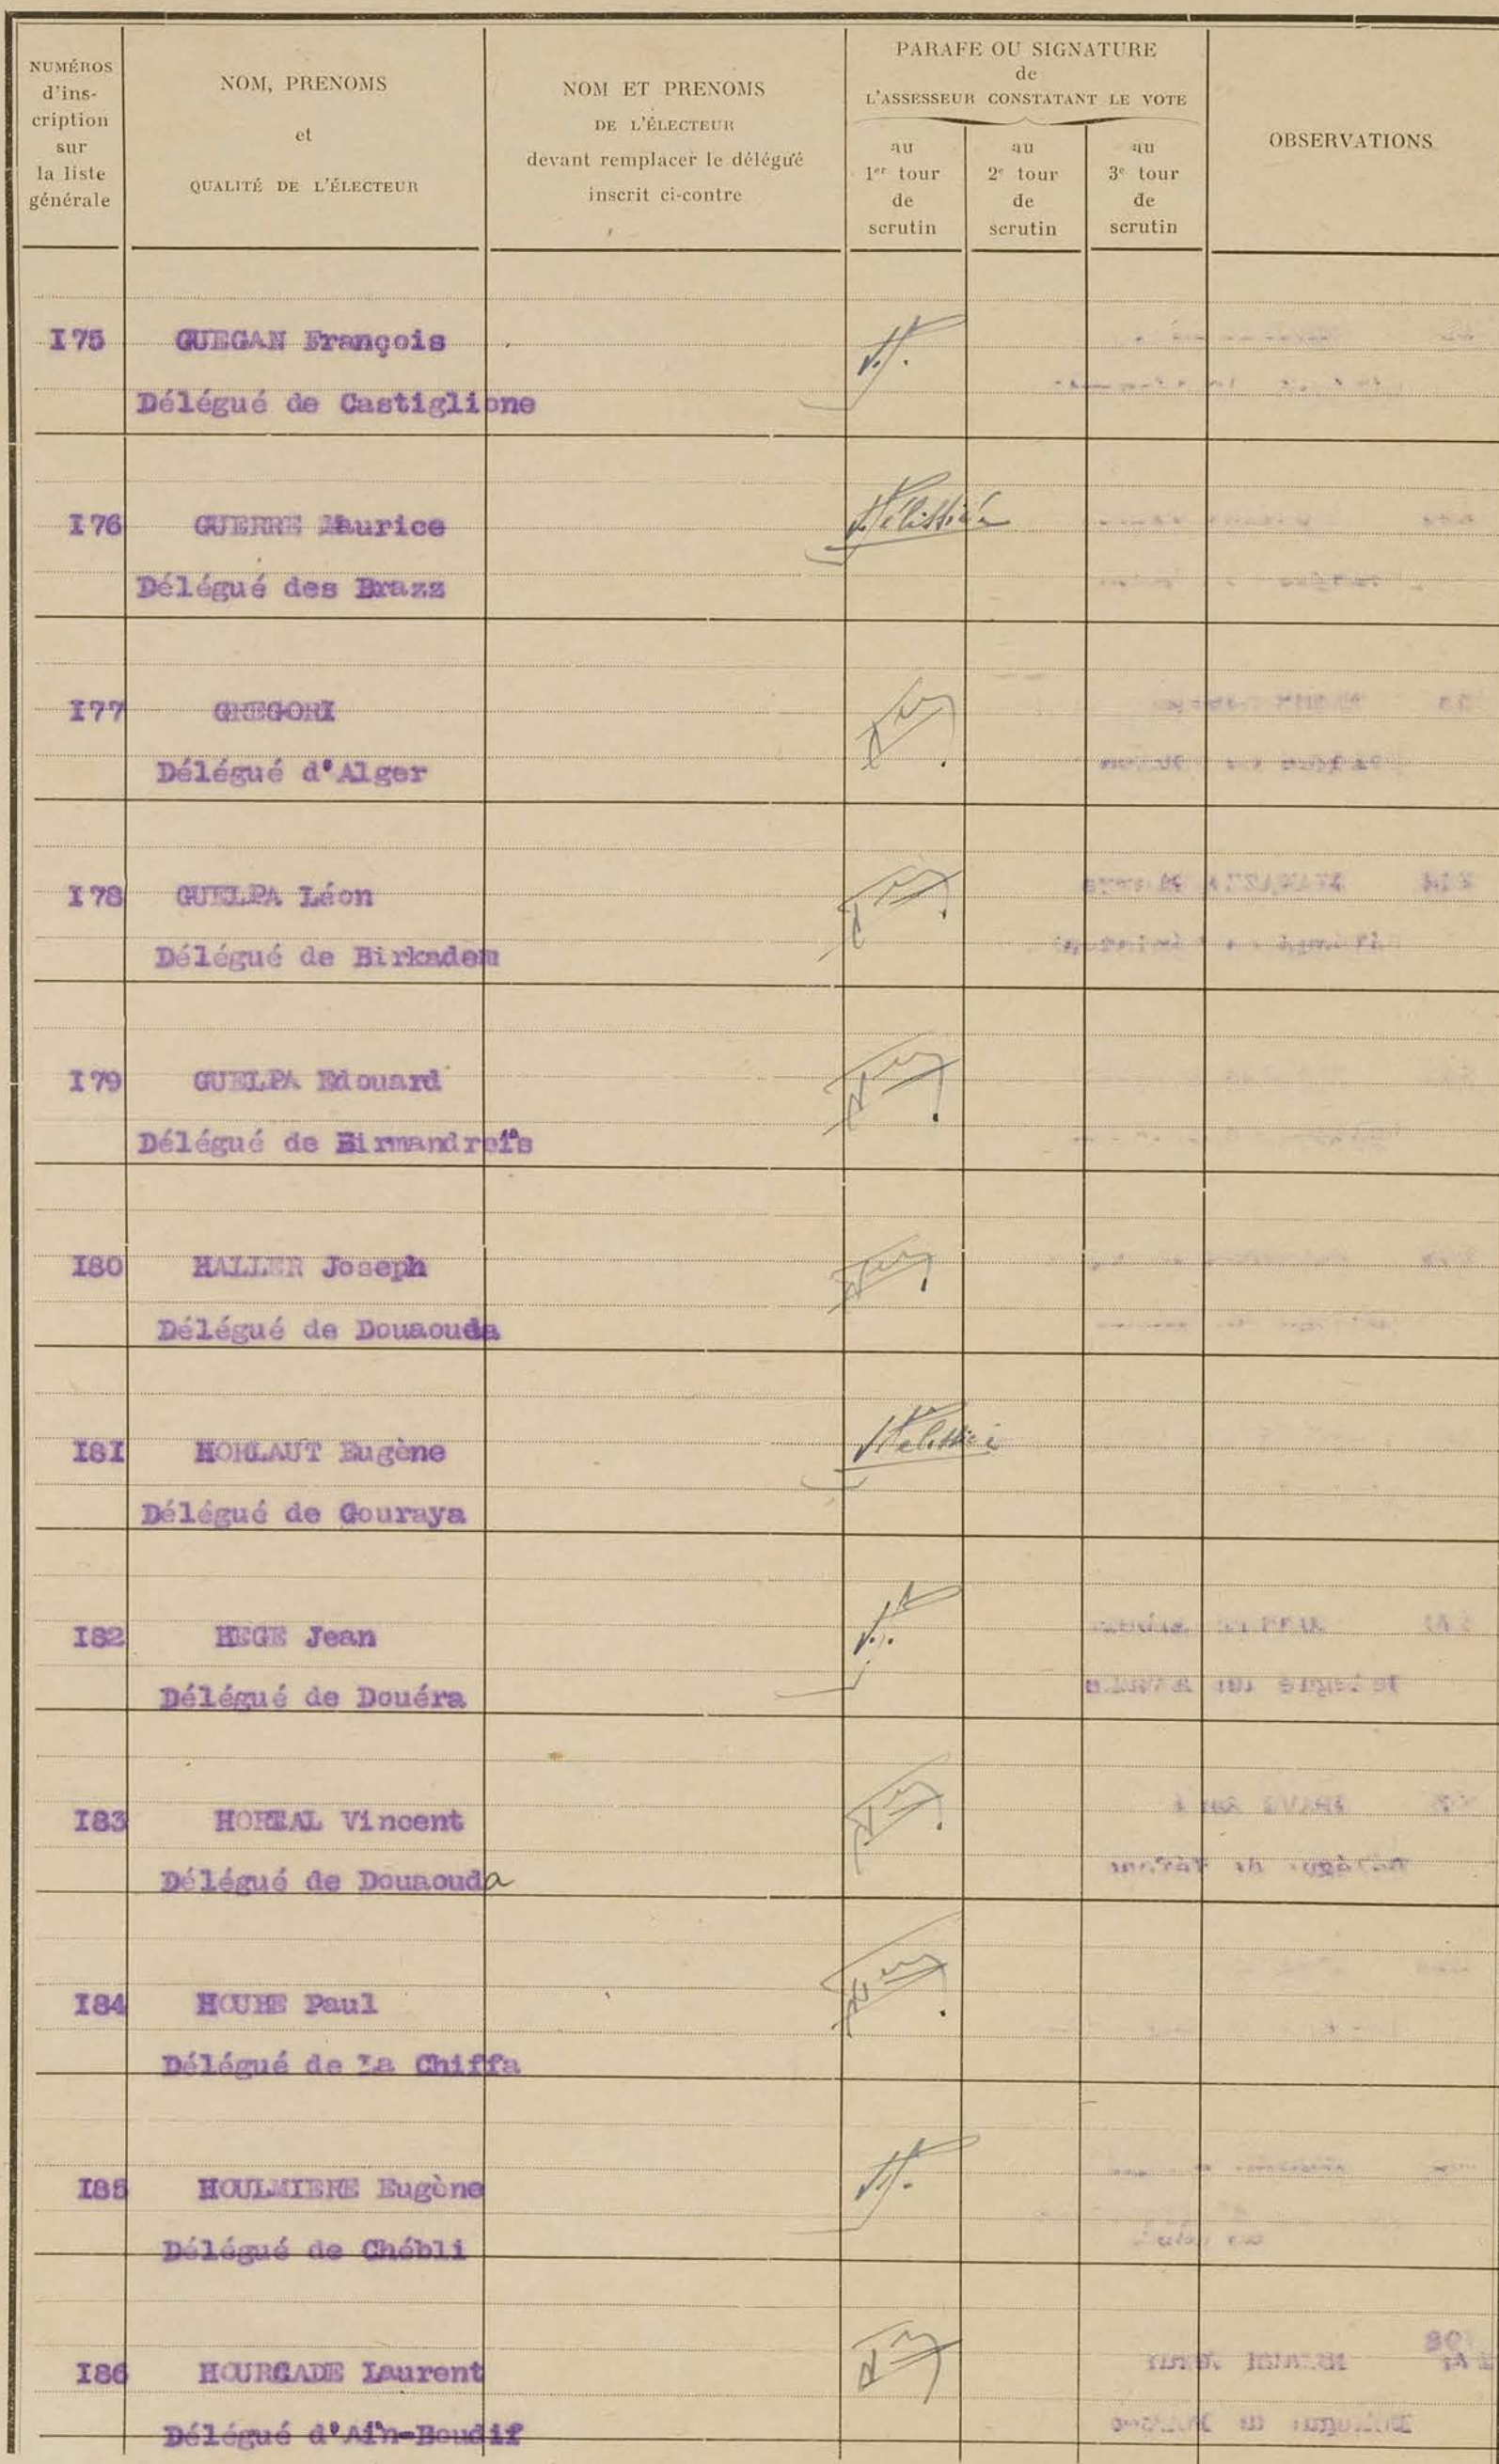 NUMÉROS
d'ins-
cription
sur
la liste
générale
NOM, PRENOMS
et
QUALITÉ DE L'ÉLECTEUR
NOM ET PRENOMS
DE L'ÉLECTEUR
devant remplacer le délégué
inscrit ci-contre
PARAFE OU SIGNATURE
de
L'ASSESSEUR CONSTATANT LE VOTE
au
1er tour
de
scrutin
au
2e tour
de
scrutin
au
3e tour
de
scrutin
OBSERVATIONS
I75 GUEGAN François
Délégué de Castiglione
I76 GUERRE Maurice
Délégué des Brazz
I77 GREGORI
Délégué d'Alger
I78 GUELPA Léon
Délégué de Birkadem
I79 GUELPA Edouard
Délégué de Birmandreïs
I80 HALLER Joseph
Délégué de Douaouda
I8I HORLAUT Eugène
Délégué de Gouraya
I82 HEGE Jean
Délégué de Douéra
I83 Vincent
Délégué de Douaouda
I84 Paul
Délégué de La Chiffa
I85 HOULMIERE Eugène
Délégué de Chébli
I86 HOURCADE Laurent
Délégué d'Aïn-Boudif